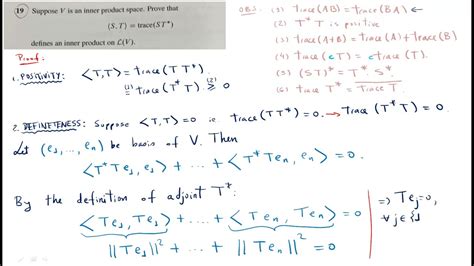 19 Suppose V is an inner product space. Prove that
⟨S, T⟩ = trace(ST*)
defines an inner product on L(V).
OBS. (1) trace(AB) = trace(BA)
(2) T* T is positive
(3) trace(A+B) = trace(A) + trace(B)
(4) trace(cT) = c trace(T)
(5) (ST)* = T* S*
(6) trace T* = trace(T)
Proof:
1. POSITIVITY: ⟨T,T⟩ = trace(TT*)
(1) = trace(T* T) (2) ≥ 0
2. DEFINETENESS: Suppose ⟨T,T⟩ = 0 i.e. trace(TT*) = 0. → trace(T* T) = 0.
Let (e₁, ..., eₙ) be basis of V. Then
⟨T* Te₁, e₁⟩ + ... + ⟨T* Teₙ, eₙ⟩ = 0.
By the definition of adjoint T*:
⟨Te₁, Te₁⟩ + ... + ⟨Teₙ, Teₙ⟩ = 0
||Te₁||² + ... + ||Teₙ||² = 0
⇒ Teⱼ = 0,
∀ j ∈ {1